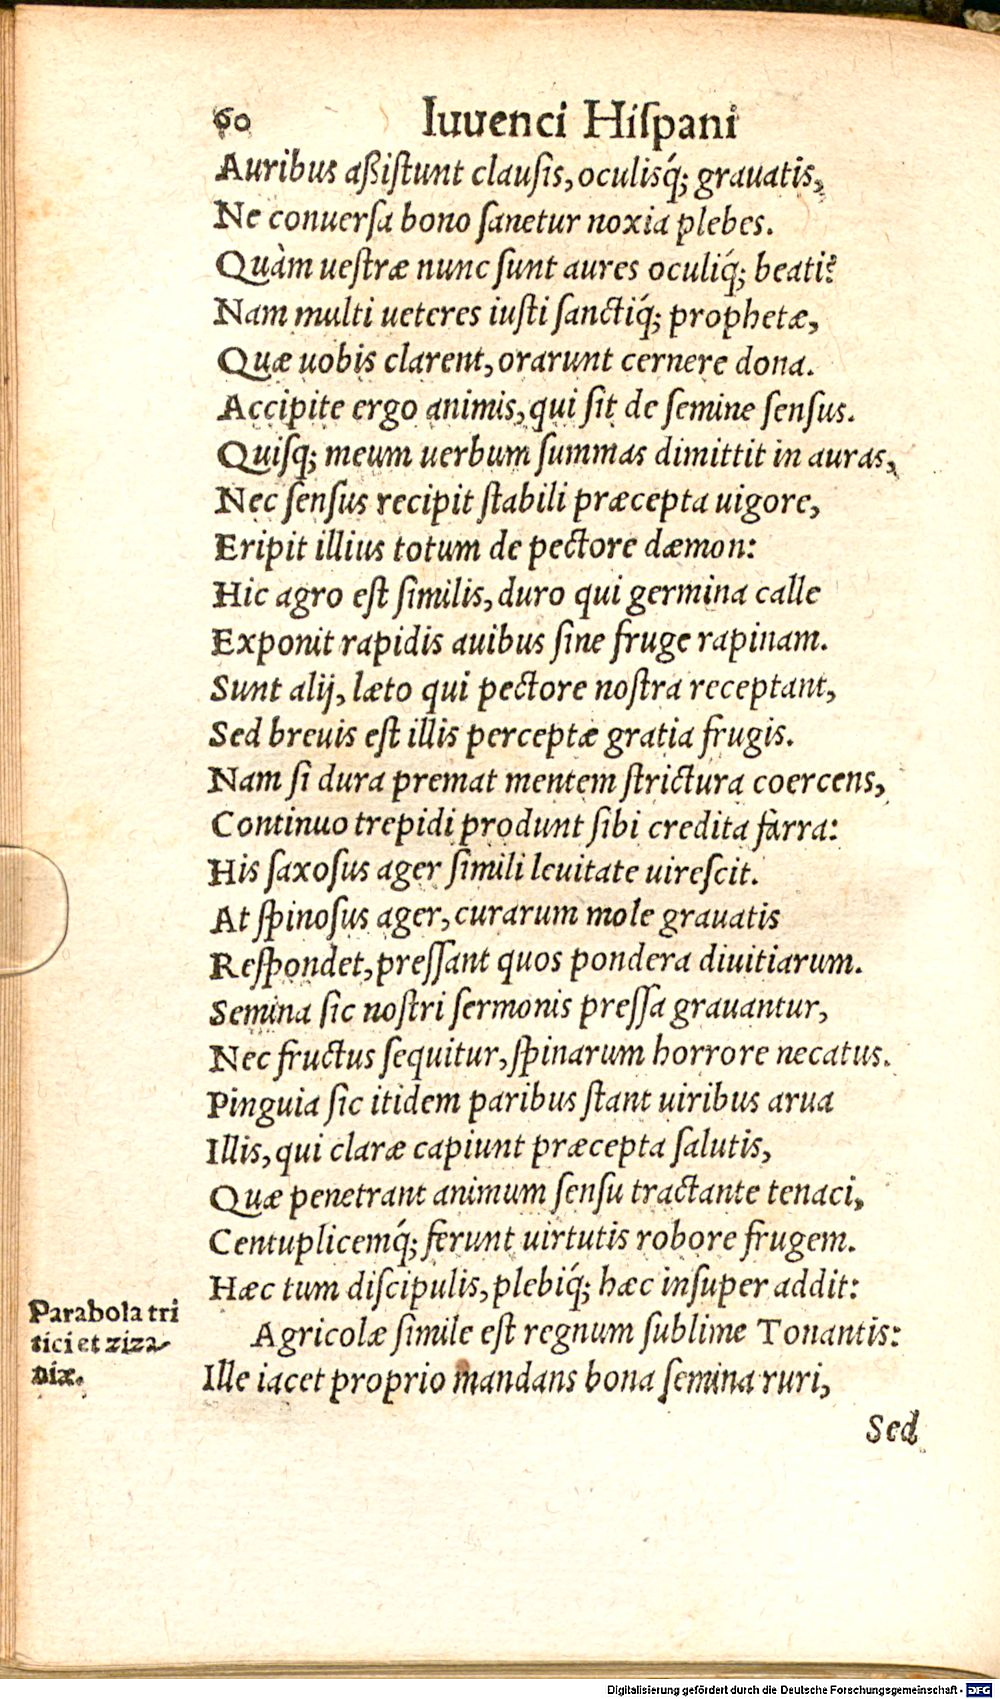 60 Iuuenci Hiſpani
Auribus aßiſtunt clauſis, oculisq́; grauatis,
Ne conuerſa bono ſanetur noxia plebes.
Quàm ueſtræ nunc ſunt aures oculiq́; beati?
Nam multi ueteres iuſti ſanctiq́; prophetæ,
Quæ uobis clarent, orarunt cernere dona.
Accipite ergo animis, qui ſit de ſemine ſenſus.
Quiſq; meum uerbum ſummas dimittit in auras,
Nec ſenſus recipit ſtabili præcepta uigore,
Eripit illius totum de pectore dæmon:
Hic agro eſt ſimilis, duro qui germina calle
Exponit rapidis auibus ſine fruge rapinam.
Sunt alij, læto qui pectore noſtra receptant,
Sed breuis eſt illis perceptæ gratia frugis.
Nam ſi dura premat mentem ſtrictura coercens,
Continuo trepidi produnt ſibi credita farra:
His ſaxoſus ager ſimili leuitate uireſcit.
At ſpinoſus ager, curarum mole grauatis
Reſpondet, preſſant quos pondera diuitiarum.
Semina ſic noſtri ſermonis preſſa grauantur,
Nec fructus ſequitur, ſpinarum horrore necatus.
Pinguia ſic itidem paribus ſtant uiribus arua
Illis, qui claræ capiunt præcepta ſalutis,
Quæ penetrant animum ſenſu tractante tenaci,
Centuplicemq́; ferunt uirtutis robore frugem.
Hæc tum diſcipulis, plebiq́; hæc inſuper addit:
Parabola tri
tici et ziza-
niæ.
Agricolæ ſimile eſt regnum ſublime Tonantis:
Ille iacet proprio mandans bona ſemina ruri,
Sed
Digitalisierung gefördert durch die Deutsche Forschungsgemeinschaft - DFG